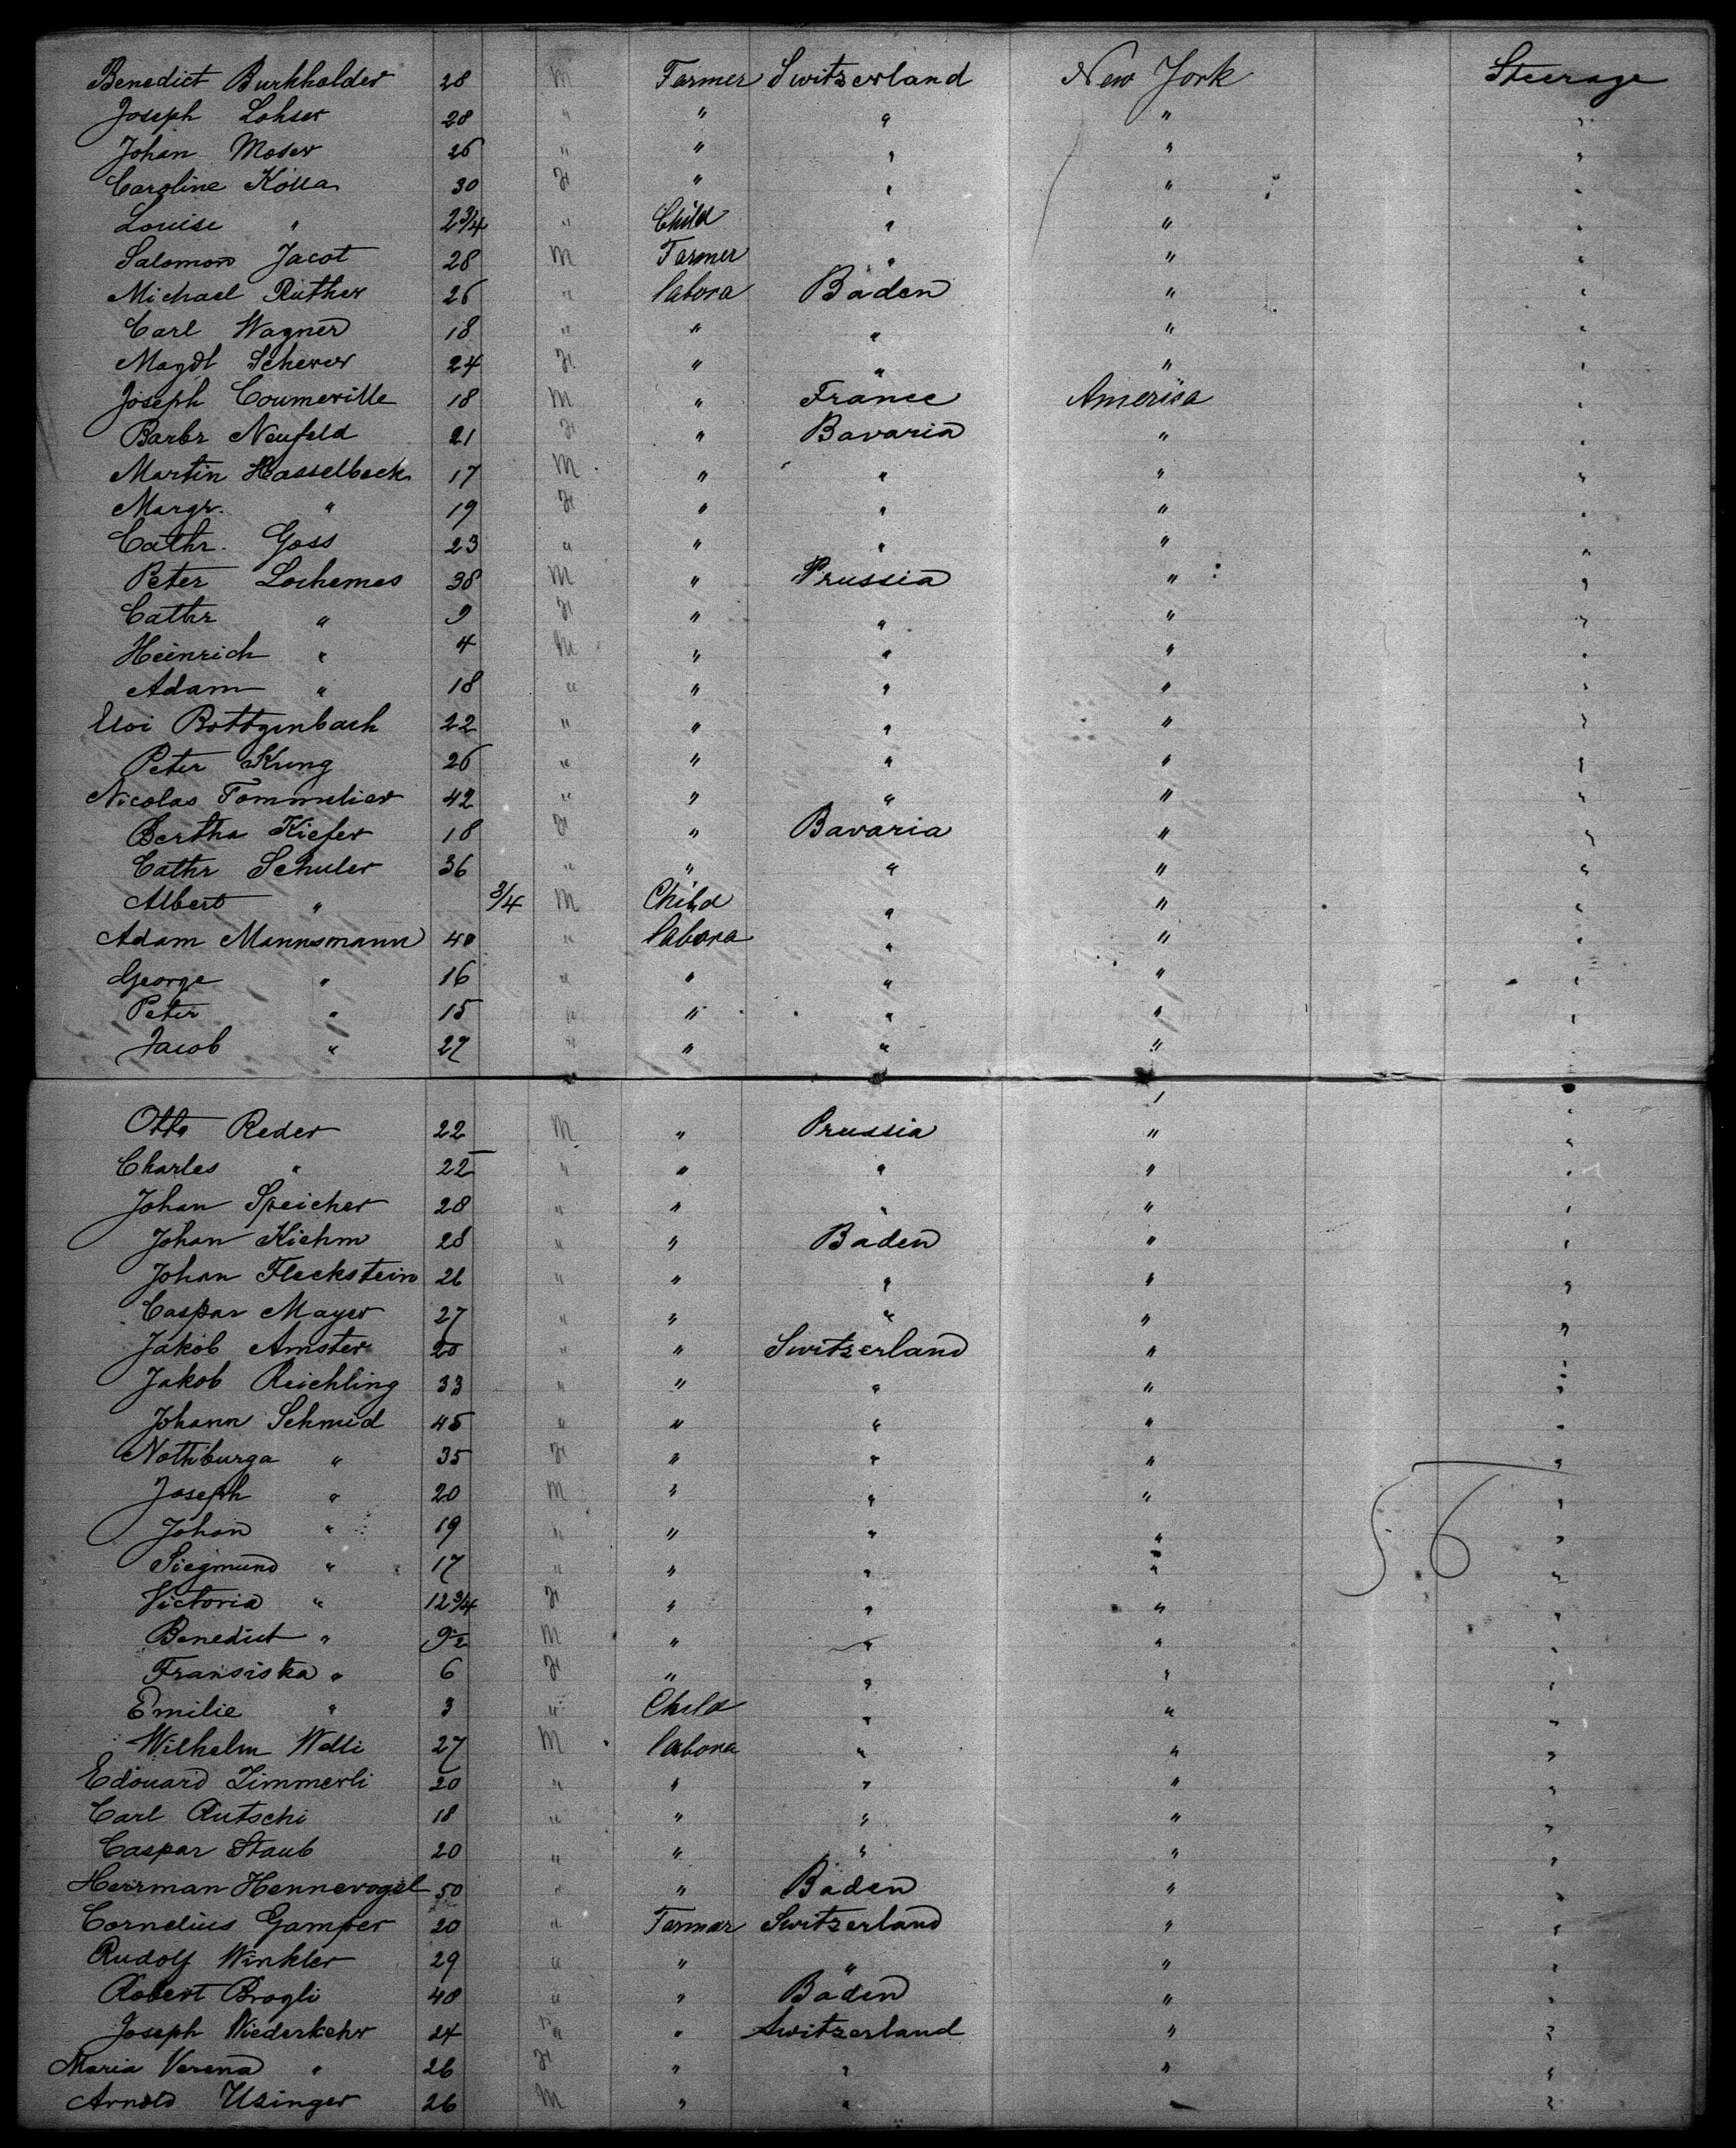 Benedict Burkhalder 28 M Farmer Switzerland New York Steerage
Joseph Lohser 28 " " " " "
Johan Moser 26 " " " " "
Caroline Kölla 30 F " " " "
Louise " 2 3/4 " Child " " "
Salomon Jacot 28 M Farmer " " "
Michael Ruther 26 " labora Baden " "
Carl Wagner 18 " " " " "
Magdl Scherer 24 F " " " "
Joseph Coumerille 18 M " France America "
Barbr Neufeld 21 F " Bavaria " "
Martin Hasselbeck 17 M " " " "
Margr. " 19 F " " " "
Cathr. Goss 23 " " " " "
Peter Lochemes 38 M " Prussia " "
Cathr " 9 F " " " "
Heinrich " 4 M " " " "
Adam " 18 " " " " "
Eloi Bottgenbach 22 " " " " "
Peter Kung 26 " " " " "
Nicolas Tommelier 42 " " " " "
Bertha Kiefer 18 F " Bavaria " "
Cathr Schuler 36 " " " " "
Albert " 3/4 M Child " " "
Adam Mannsmann 40 " labora " " "
George " 16 " " " " "
Peter " 15 " " " " "
Jacob " 27 " " " " "
Otto Reder 22 M " Prussia " "
Charles " 22 " " " " "
Johan Speicher 28 " " " " "
Johan Kiehm 28 " " Baden " "
Johan Fleckstein 26 " " " " "
Caspar Mayer 27 " " " " "
Jakob Amster 20 " " Switzerland " "
Jakob Reichling 33 " " " " "
Johann Schmid 45 " " " " "
Nothburga " 35 F " " " "
Joseph " 20 M " " " "
Johan " 19 " " " " "
56
Siegmund " 17 " " " " "
Victoria " 12 3/4 F " " " "
Benedict " 9 1/2 M " " " "
Fransiska " 6 F " " " "
Emilie " 3 " Child " " "
Wilhelm Welli 27 M labora " " "
Edouard Zimmerli 20 " " " " "
Carl Rutschi 18 " " " " "
Caspar Staub 20 " " " " "
Herrman Hennevogel 50 " " Baden " "
Cornelius Gamper 20 " Farmer Switzerland " "
Rudolf Winkler 29 " " " " "
Robert Brogli 40 " " Baden " "
Joseph Niederkehr 24 " " Switzerland " "
Maria Verena " 26 F " " " "
Arnold Usinger 26 M " " " "